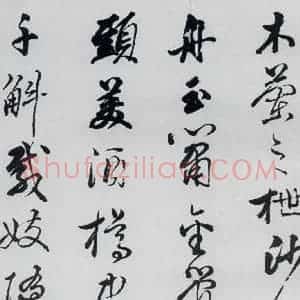 木蘭之枻沙
舟玉簫金管
頭美酒樽中
千斛載妓隨
Shufaziliao.com